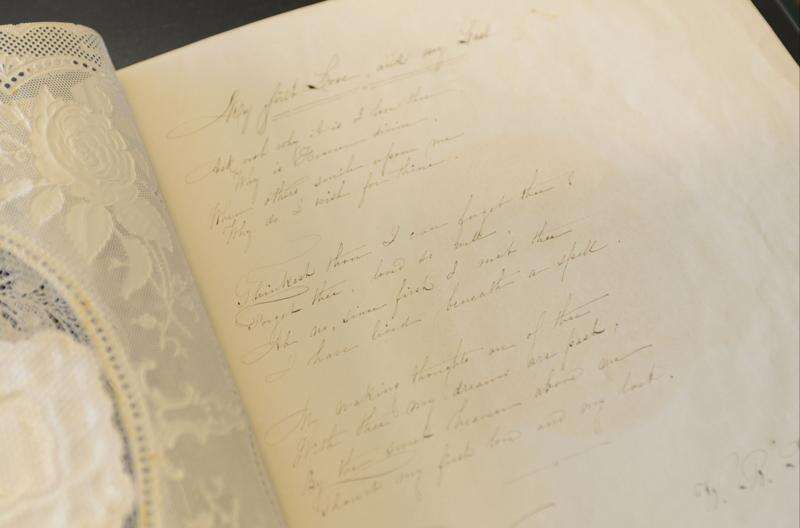 My first Love, and my Last
Ask not why it is I love thee
Why is Heaven divine.
When others smile upon me
Why do I wish for thine.
Thinkest thou I can forget thee?
Forget thee, lov'd so well.
Ah no, since first I met thee
I have lived beneath a spell.
My waking thoughts are of thee
With thee my dreams are past;
By the heaven above me
Thou'rt my first love and my last.
W. R.